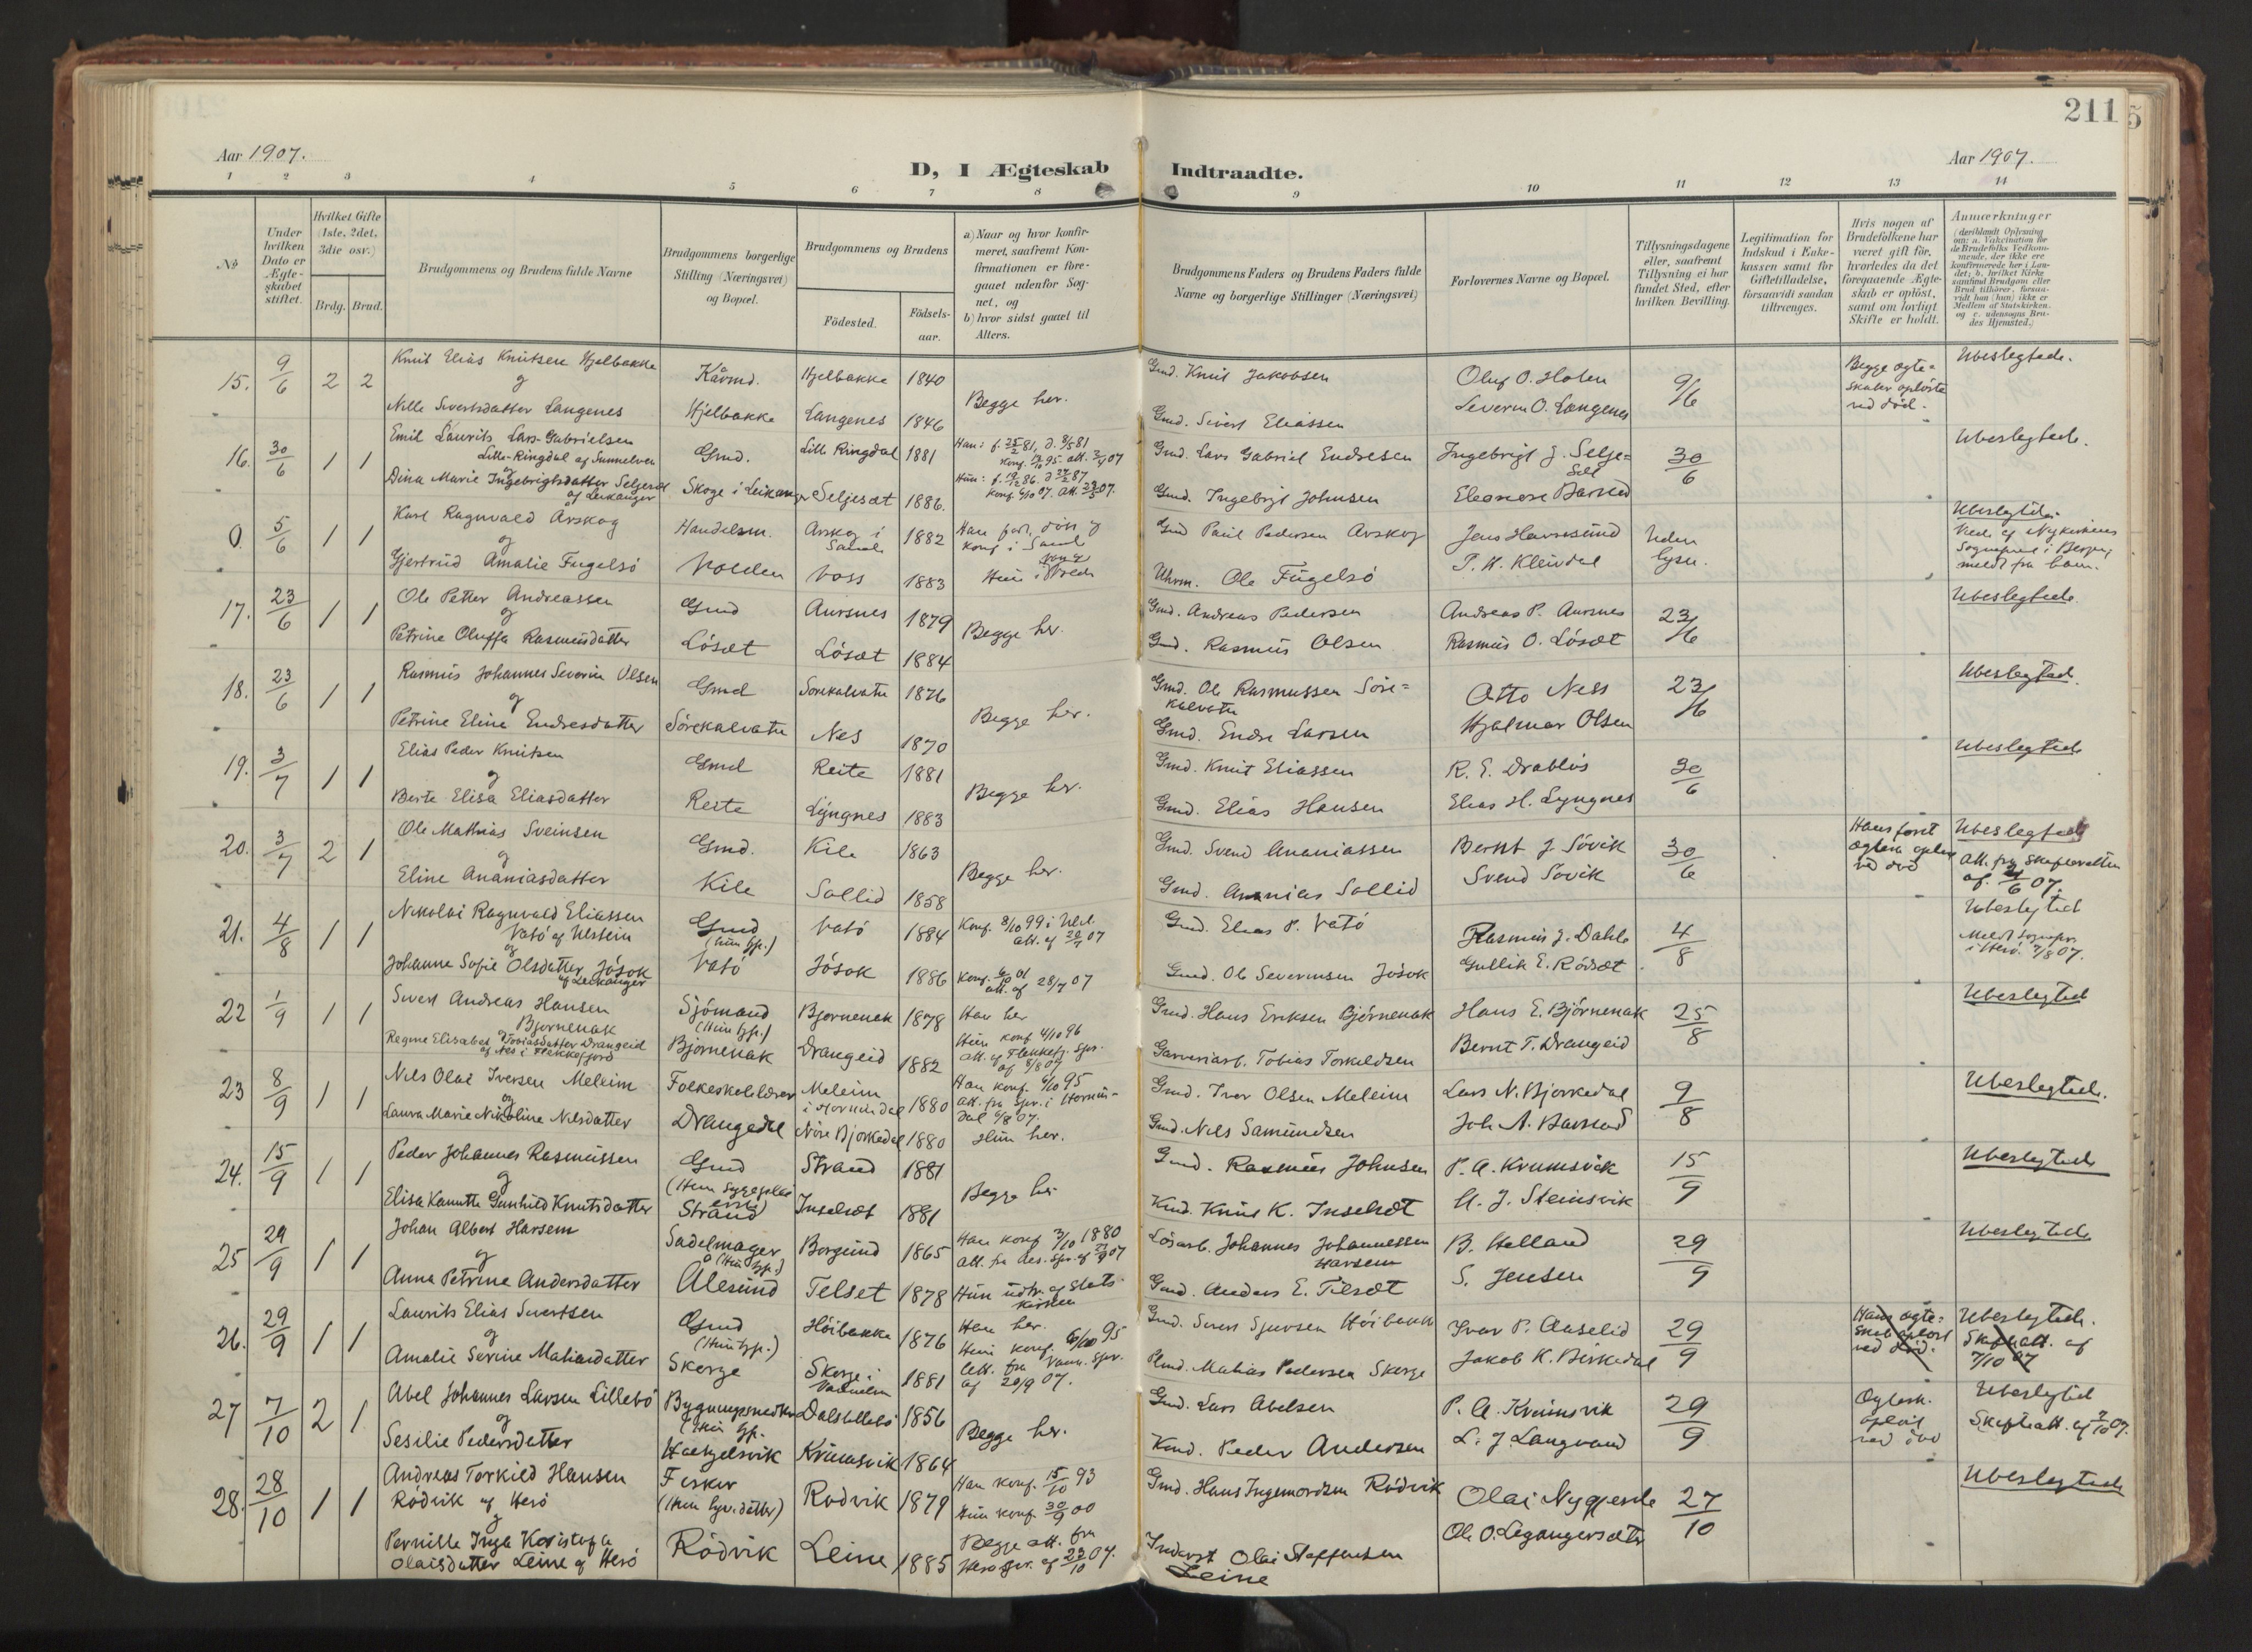 211
5
Aar 1907.
Aar 1907.
D, I Ægteskab Indtraadte.
1 2 3 4 5 6 7 8 9 10 11 12 13 14
No
Under hvilken Dato er Ægteskabet stiftet.
Hvilket Gifte (1ste, 2det, 3die osv.)
Brdg. Brud.
Brudgommens og Brudens fulde Navne
Brudgommens borgerlige Stilling (Næringsvei) og Bopæl.
Brudgommens og Brudens
Födested.
Födsels-aar.
a) Naar og hvor konfir-
meret, saafremt Kon-
firmationen er fore-
gaaet udenfor Sog-
net, og
b) hvor sidst gaaet til
Alters.
Brudgommens Faders og Brudens Faders fulde
Navne og borgerlige Stillinger (Næringsvei)
Forlovernes Navne og Bopæl.
Tillysningsdagene
eller, saafremt
Tillysning ei har
fundet Sted, efter
hvilken Bevilling.
Legitimation for
Indskud i Enke-
kassen samt for
Giftetilladelse,
forsaavidt saadan
tiltrænges.
Hvis nogen af
Brudefolkene har
været gift för,
hvorledes da det
foregaaende Ægte-
skab er oplöst,
samt om lovligt
Skifte er holdt.
Anmærkninger
(deriblandt Oplysning
om: a. Vakcination for
de Brudefolks Vedkom-
mende, der ikke ere
konfirmerede her i Lan-
det; b. hvilket Kirke
samfund Brudgom eller
Brud tilhører, forsaa-
vidt han (hun) ikke er
Medlem af Statskirken.
og c. udensogns Bru-
des Hjemsted.)
15. 9/6 2 2 Knut Elias Knutsen Hjelbakke
og
Nille Sivertsdatter Langenes
Kårmd.
Hjelbakke
Hjelbakke 1840
Langenes 1846
Begge her.
Gmd. Knut Jakobsen
Gmd. Sivert Eliassen
Oluf O. Holen
Severin O. Langenes
9/6
Begge ægte-
skaber opløste
ved død.
Ubeslegtede.
16. 30/6 1 1 Emil Laurits Lars-Gabrielsen
Lille-Ringdal af Sunnelven
og
Dina Marie Ingebrigtsdatter Seljeset
af Leikanger
Gmd.
Skoge i Leikanger
Lille Ringdal 1881
Seljesæt 1886.
Gmd. Lars Gabriel Endresen
Gmd. Ingebrigt Johnsen
Ingebrigt J. Selje-
set
Eleonore Barsed
30/6
Ubeslegtede.
0. 5/6 1 1 Karl Ragnvald Årskog
og
Gjertrud Amalie Fugelsö
Handelsm.
Volden
Årskog i
Sande 1882
Voss 1883
Gmd Paul Pedersen Årskog
Uhrm. Ole Fugelsö
Jens Havresund
P. H. Kleivdal
Uden
lysn.
Ubeslegtede.
Viede af Nykirkens
Sogneprest i Bergen
meldt fra ham.
17. 23/6 1 1 Ole Petter Andreassen
og
Petrine Oluffa Rasmusdatter
Gmd
Lösæt
Aursnes 1879
Lösæt 1884
Begge her.
Gmd. Andreas Pedersen
Gmd. Rasmus Olsen
Andreas P. Aursnes
Rasmus O. Lösæt
23/6
Ubeslegtede.
18. 23/6 1 1 Rasmus Johannes Severin Olsen
og
Petrine Eline Endresdatter
Gmd
Sörekalvatn
Sörekalvatn 1876
Nes 1870
Begge her.
Gmd. Ole Rasmussen Söre-
kalvatn
Gmd. Endre Larsen
Otto Ness
Hjalmar Olsen
23/6
Ubeslegted.
19. 3/7 1 1 Elias Peder Knutsen
og
Berte Elisa Eliasdatter
Gmd
Reite
Reite 1881
Lyngnes 1883
Begge her.
Gmd. Knut Eliassen
Gmd. Elias Hansen
R. E. Drabløs
Elias H. Lyngnes
30/6
Ubeslegted
20. 3/7 2 1 Ole Mathias Sveinsen
og
Eline Ananiasdatter
Gmd.
Kile
Kile 1863
Sollid 1858
Begge her.
Gmd. Svend Ananiassen
Gmd. Ananias Sollid
Bernt J. Sövik
Svend Sövik
30/6
ved död
Ubeslegted
Att. fra Skifteretten
af /6 07.
21. 4/8 1 1 Nikolai Ragnvald Eliassen
Vatö af Ulstein
og
Johanne Sofie Olsdatter Jösok
af Leikanger
Gmd
Vatö
Vatö 1884
Jösok 1886
Konf. 8/10 99 i Ulst.
Gmd. Elias P. Vatö
Gmd. Ole Severinsen Jösok
Rasmus J. Dahle
Gullik E. Rödsæt
4/8
Ubeslegted
Meldt sognepr.
i Herö 7/8 07.
22 1/9 1 1 Sivert Andreas Hansen
Bjørnenak
og
Regine Elisabet Tobiasdatter Drangeid
af Nes i Flekkefjord
Sjömand
Bjørnenak
Bjørnenak 1878
Drangeid 1882
Han her
Hun konf 4/10 96
att. af Flekkefj. spr.
af 8/8 07
Gmd. Hans Eriksen Bjørnenak
Garveriarb. Tobias Torkeldsen
Hans E. Bjørnenak
Bernt T. Drangeid
25/8
Ubeslegted
23 8/9 1 1 Nils Olai Iversen Meleim
og
Laura Marie Nikoline Nilsdatter
Folkeskolelærer
Drangedal
Meleim
i Hornindal 1880
Nöre Bjørkedal 1880
Han konf. 6/10 95
att. fra spr. i Hornin-
dal 6/8 07.
Hun her.
Gmd. Iver Olsen Meleim
Gmd. Nils Samundsen
Lars N. Bjørkedal
Joh. A. Barsund
9/8
Ubeslegtede.
24. 15/9 1 1 Peder Johannes Rasmussen
og
Elisa Kanutte Gunhild Knutsdatter
Gmd
Strand
Strand 1881
Inselset 1881
Begge her
Gmd. Rasmus Johnsen
Kmd. Knut K. Inselset
P. A. Krumsvik
A. J. Steinsvik
15/9
Ubeslegted
25 29/9 1 1 Johan Albert Harsem
og
Anna Petrine Andersdatter
Sadelmager
Ålesund
Borgund 1865
Telset 1878
Han konf 3/10 1880
Hun udtr. af Stats-
kirken
Lösarb. Johannes Johannessen
Harsem
Gmd. Anders E. Tilset
B. Helland
S. Jensen
29/9
Ubeslegted
26. 29/9 1 1 Laurits Elias Sivertsen
og
Amalie Serine Matiasdatter
Gmd
Skorge
Höibakke 1876
Skorge i
Vanneluen 1881
Han her.
Hun konf. 6/10 95
att. fra Vann. spr.
af 20/9 07.
Gmd. Sivert Sjursen Höibakk
Plmd. Matias Pedersen Skorge
Ivar P. Aaselid
Jakob K. Birkedal
29/9
Hans ægte-
skab oplöst
ved död.
Ubeslegtede.
Skifteatt. af
7/10 07
27 7/10 2 1 Abel Johannes Larsen Lillebö
og
Sesilie Pedersdatter
Bygningssnedker
Dalslillebö 1856
Krumsvik 1864
Begge her.
Gmd. Lars Abelsen
Kmd. Peder Andersen
P. A. Krumsvik
L. J. Langvand
29/9
Ægtesk.
oplöst
ved död
Ubeslegted
Skifteatt. af 7/10 07.
28. 28/10 1 1 Andreas Torkild Hansen
Rödvik af Herö
og
Pernille Inga Kristofa
Olaisdatter Leine af Herö
Fisker
Rödvik
Rödvik 1879
Leine 1885
Han konf. 15/10 93
Hun konf 30/9 00
Begge att. fra
Herö spr. af 23/10 07.
Gmd. Hans Ingemordsen Rödvik
Inderst Olai Steffensen
Leine
Olai Nygjerde
Ole O. Legangersæter
27/10
Ubeslegted